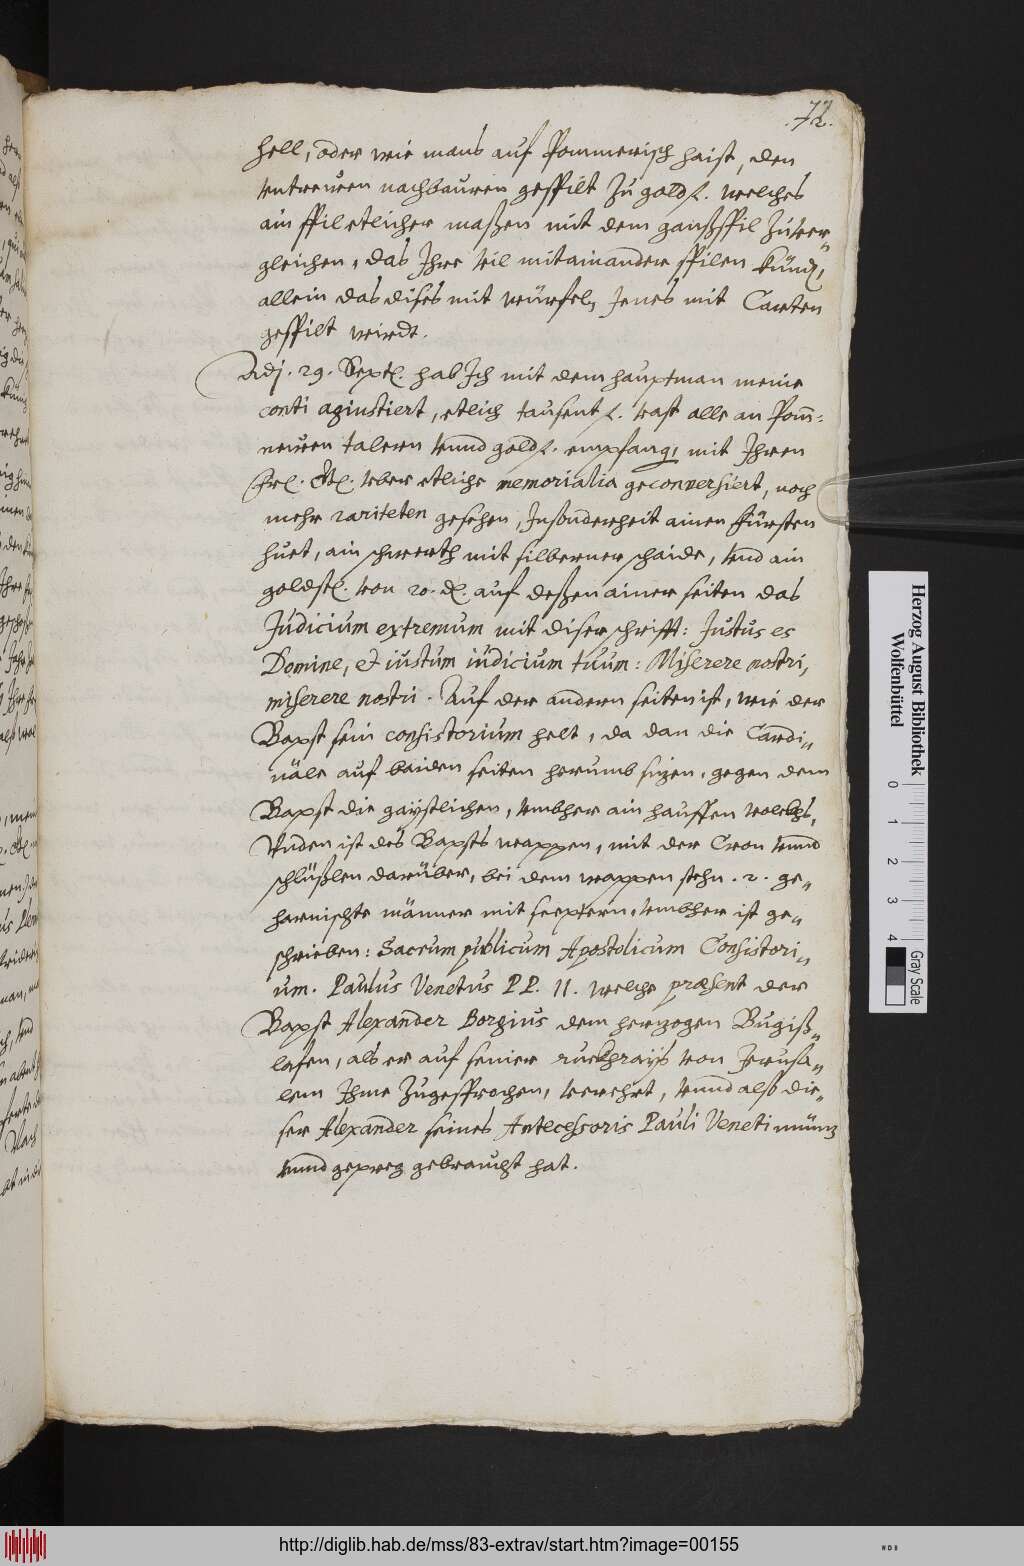 72.
hell, oder wie mans auf Pommerisch haist, den
untreuen nachbauren gespilt zu goldf. welches
ain spil etlicher maßen mit dem gansspil zuuer„
gleichen, das Ihre vil mitainander spilen künd,
allein das dises mit würfeln, Jenes mit Carten
gespilt wirdt.
Adj. 29. Sept. hab Ich mit dem hauptman meine
conti agiustiert, etlich tausent f. vast alle an Pom̄:
neuen talern vnnd goldf. empfang, mit Ihren
frl. Gl. vber etliche memorialia geconversiert, noch
mehr rariteten gesehen, Insonderheit ainen fürsten
huet, ain schwerth mit silberner schaide, vnd ain
goldst. von 20. d. auf deßen ainer seiten das
Judicium extremum mit diser schrifft: Justus es
Domine, et iustum iudicium tuum: Miserere nostri,
miserere nostri. Auf der andern seiten ist, wie der
Bapst sein consistorium helt, da dan die Cardi„
näle auf baiden seiten herumb sizen, gegen dem
Bapst die gaystlichen, vmbher ain hauffen volckhs,
Vnden ist des Bapsts wappen, mit der Cron vnnd
schlüßlen darüber, bei dem wappen stehn .2. ge„
harnischte männer mit sceptern, vmbher ist ge„
schrieben: Sacrum publicum Apostolicum Consistori„
um. Paulus Venetus PP. II. welche præsent der
Bapst Alexander Borgius dem herzogen Bugiß„
lafen, als er auf seiner ruckhraiß von Jerusa„
lem Ihme zugesprochen, verehrt, vnnd also die„
ser Alexander seines Antecessoris Pauli Veneti münz
vnnd gepreg gebraucht hat.
Herzog August Bibliothek
Wolfenbüttel
0 1 2 3 4
Gray Scale
http://diglib.hab.de/mss/83-extrav/start.htm?image=00155
WDB